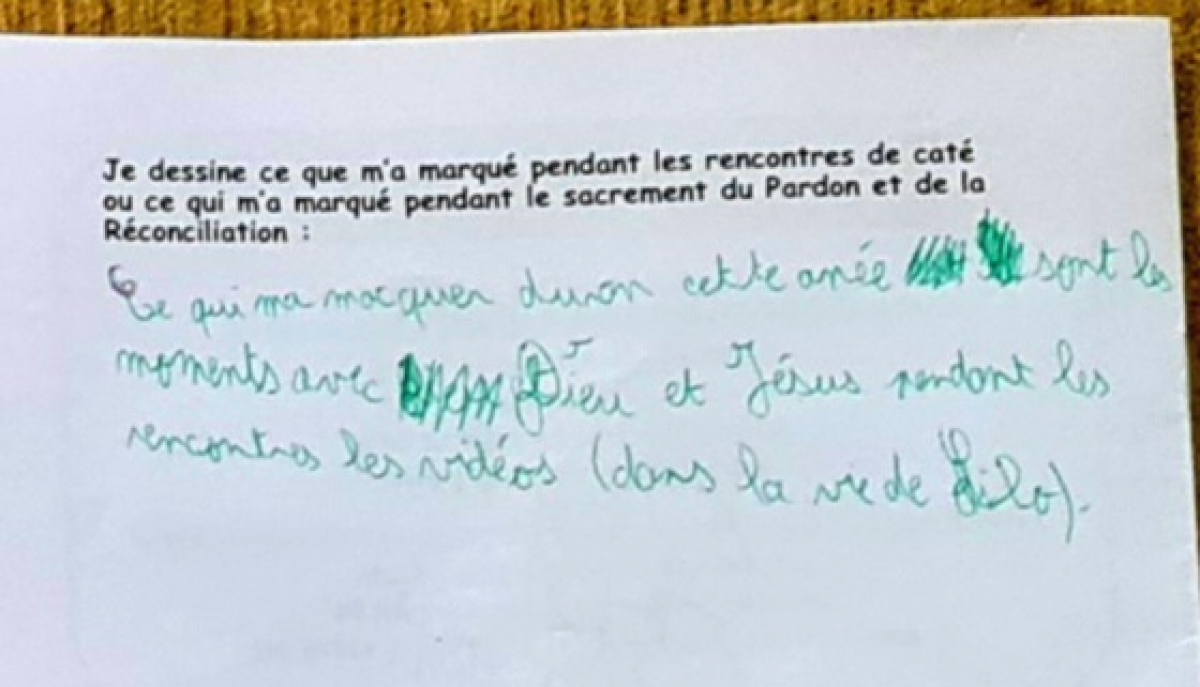 Je dessine ce que m'a marqué pendant les rencontres de caté
ou ce qui m'a marqué pendant le sacrement du Pardon et de la
Réconciliation :
Ce qui ma marquer duron cette anée sont les
moments avec Dieu et Jésus pendant les
rencontres les vidéos (dans la vie de Lilo).